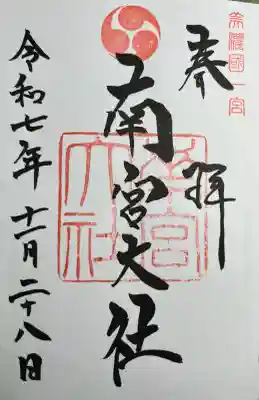 美濃國一宮
奉拝
南宮大社
南宮大社
令和七年十一月二十八日